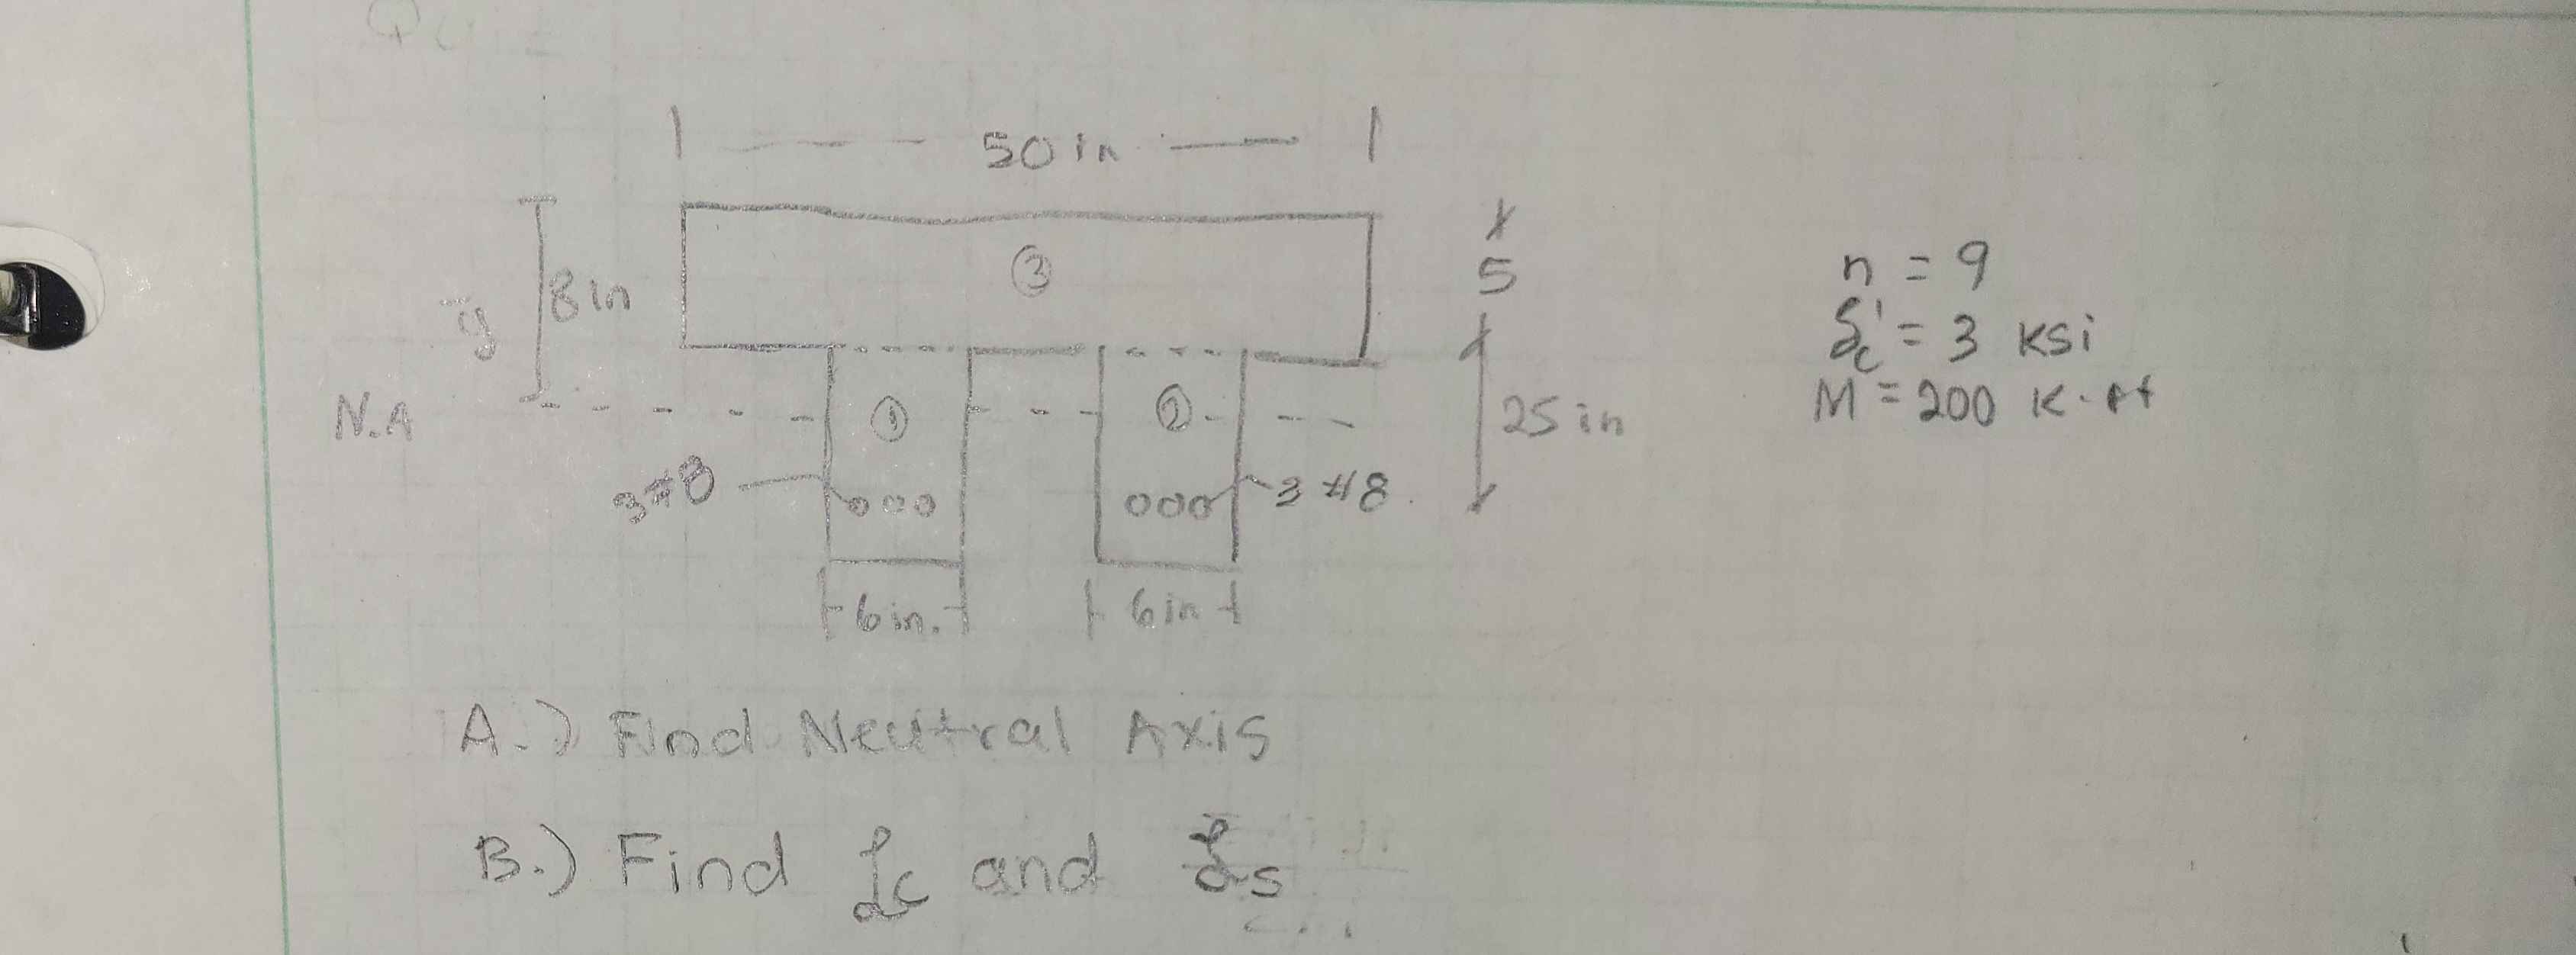 50 in
8 in
ȳ
③
5
n = 9
f'c = 3 ksi
M = 200 k·ft
N.A
①
②
25 in
3#8
3 #8
6 in.
6 in
A.) Find Neutral Axis
B.) Find fc and fs